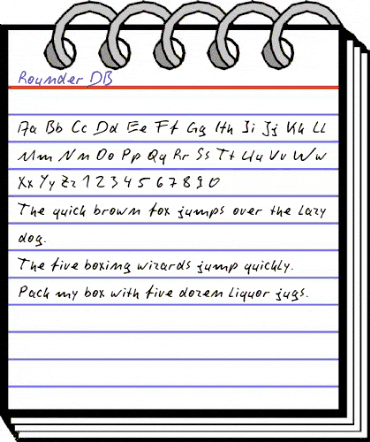 Rounder DB
Aa Bb Cc Dd Ee Ff Gg Hh Ii Jj Kk Ll
Mm Nn Oo Pp Qq Rr Ss Tt Uu Vv Ww
Xx Yy Zz 1 2 3 4 5 6 7 8 9 0
The quick brown fox jumps over the lazy
dog.
The five boxing wizards jump quickly.
Pack my box with five dozen liquor jugs.